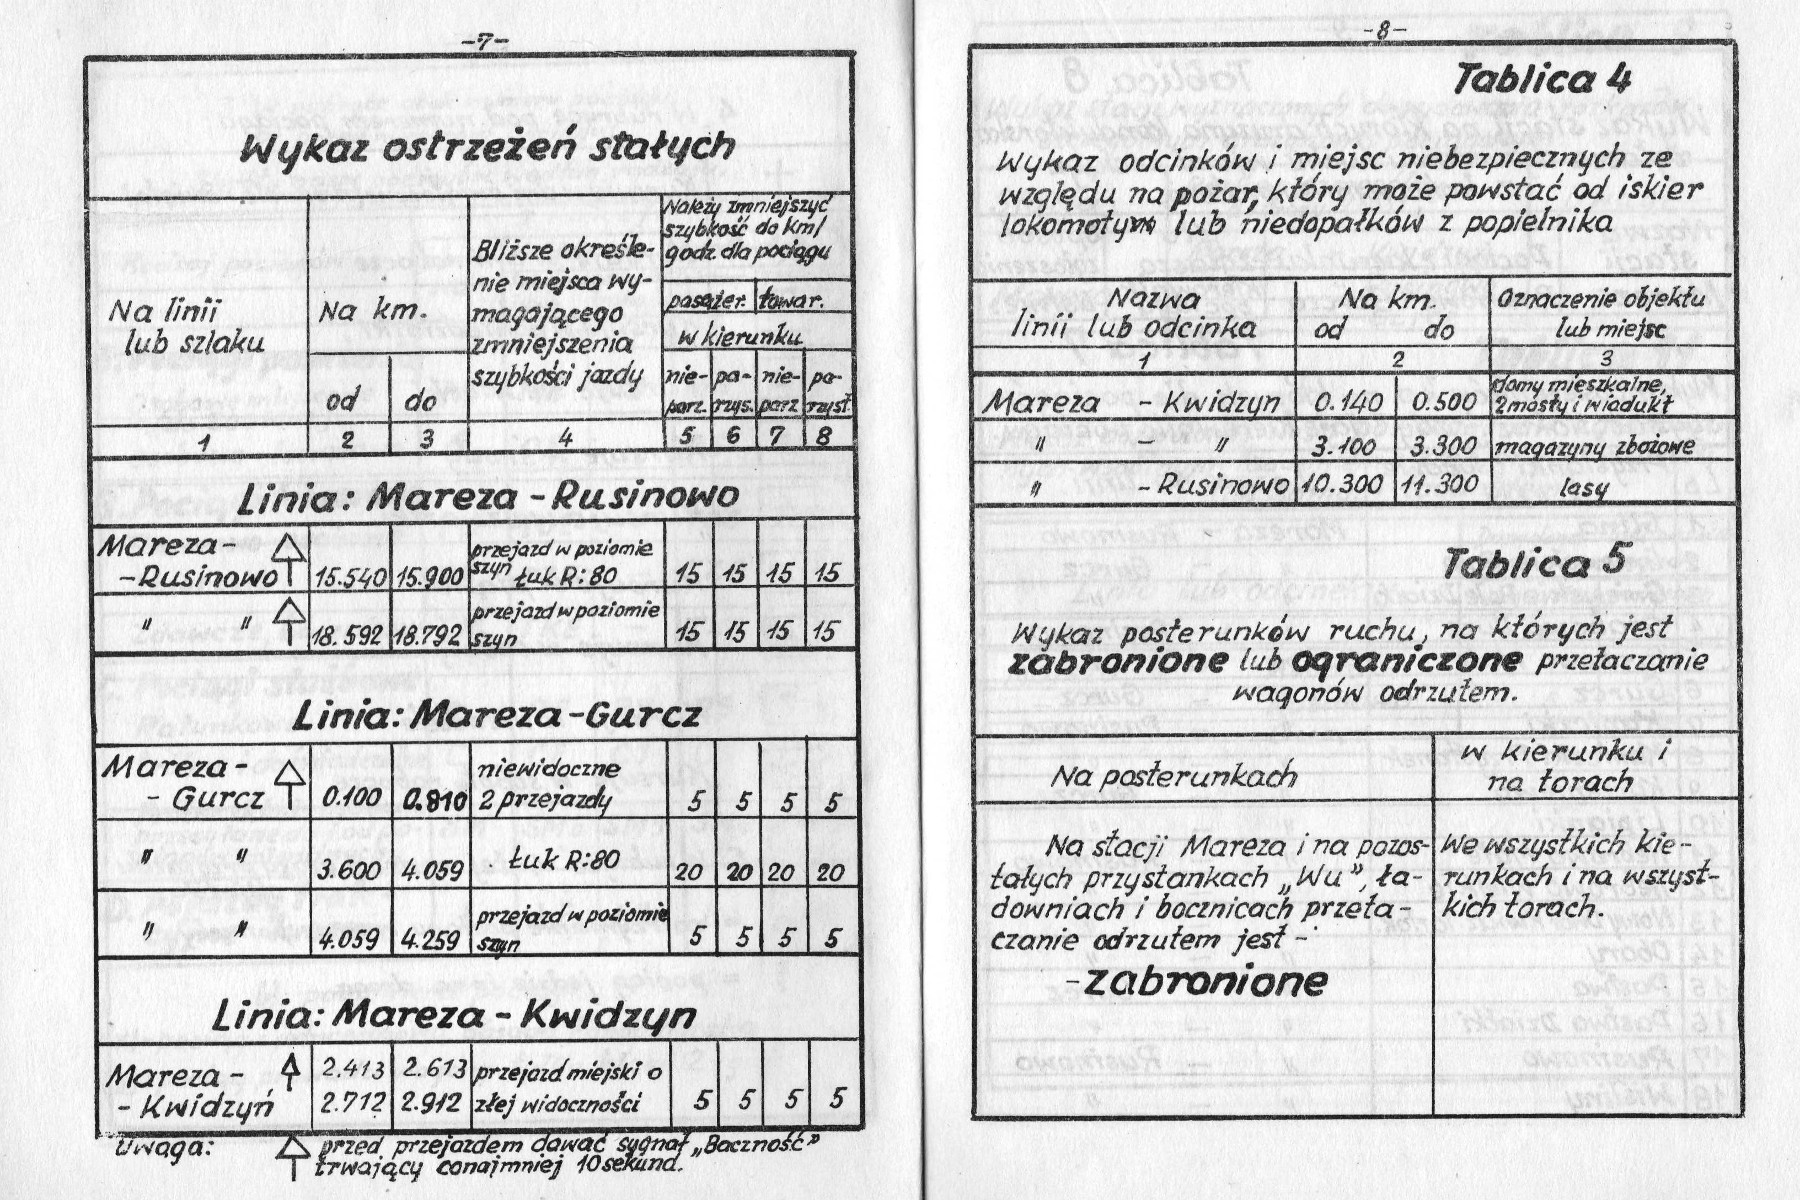 -7-
Wykaz ostrzeżeń stałych
Na linii
lub szlaku
Na km.
od do
Bliższe określe-
nie miejsca wy-
magającego
zmniejszenia
szybkości jazdy
Należy zmniejszyć
szybkość do km/
godz. dla pociągu
pasażer. towar.
w kierunku
nie- pa- nie- pa-
parz. rzys. parz rzyst.
1 2 3 4 5 6 7 8
Linia: Mareza - Rusinowo
Mareza - przejazd w poziomie
-Rusinowo 15.540 15.900 szyn Łuk R:80 15 15 15 15
" " przejazd w poziomie
18.592 18.792 szyn 15 15 15 15
Linia: Mareza - Gurcz
Mareza - niewidoczne
- Gurcz 0.100 0.810 2 przejazdy 5 5 5 5
" " 3.600 4.059 Łuk R:80 20 20 20 20
" " przejazd w poziomie
4.059 4.259 szyn 5 5 5 5
Linia: Mareza - Kwidzyn
Mareza - 2.413 2.613 przejazd miejski o
- Kwidzyń 2.712 2.912 złej widoczności 5 5 5 5
Uwaga: przed przejazdem dawać sygnał „Baczność”
trwający conajmniej 10 sekund.
-8-
Tablica 4
Wykaz odcinków i miejsc niebezpiecznych ze
względu na pożar, który może powstać od iskier
lokomotywy lub niedopałków z popielnika
Nazwa Na km. Oznaczenie objektu
linii lub odcinka od do lub miejsc
1 2 3
domy mieszkalne,
Mareza - Kwidzyn 0.140 0.500 2 mosty i wiadukt
" - " 3.100 3.300 magazyny zbożowe
" - Rusinowo 10.300 11.300 lasy
Tablica 5
Wykaz posterunków ruchu, na których jest
zabronione lub ograniczone przetaczanie
wagonów odrzutem.
Na posterunkach
w kierunku i
na torach
Na stacji Mareza i na pozos-
tałych przystankach „Wu”, ła-
downiach i bocznicach przeta-
czanie odrzutem jest -
- zabronione
We wszystkich kie-
runkach i na wszyst-
kich torach.